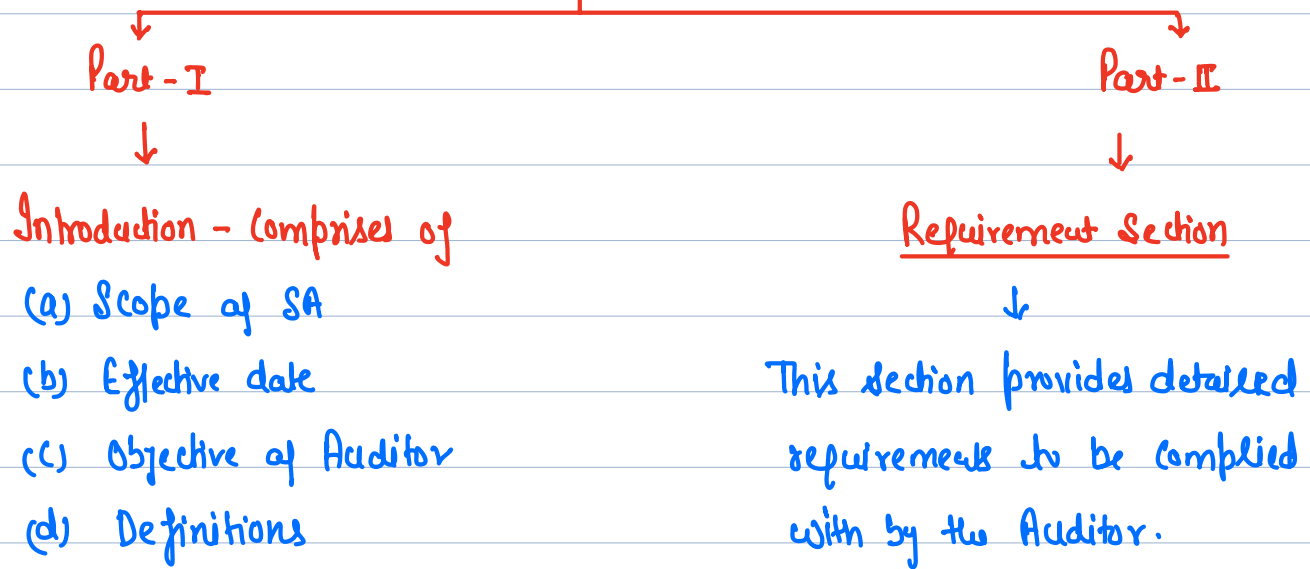 Part-I
Introduction - Comprises of
(a) Scope of SA
(b) Effective date
(c) Objective of Auditor
(d) Definitions
Part-II
Requirement Section
This section provides detailed
requirements to be complied
with by the Auditor.